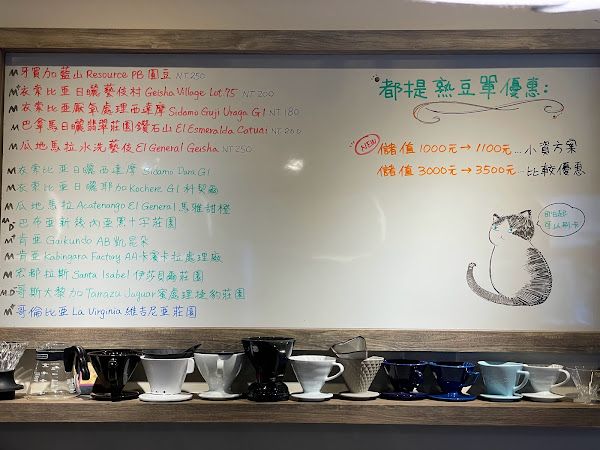 M 牙買加藍山 Resource PB 圓豆 NT 250
M 衣索比亞日曬藝伎村 Geisha Village Lot 75 NT 200
M 衣索比亞厭氧處理西達摩 Sidamo Guji Uraga G1 NT 180
M 巴拿馬日曬翡翠莊園鑽石山 El Esmeralda Catuai NT 200
M 瓜地馬拉水洗藝伎 El General Geisha NT 250
M 衣索比亞日曬西達摩 Sidamo G1
M 衣索比亞日曬耶加 Kochere G1 科契爾
M 瓜地馬拉 Acatenango El General 馬雅甜橙
M D 巴布亞新幾內亞黑十字莊園
M 肯亞 Gaikundo AB 凱昆朵
M 肯亞 Kabingara Factory AA 卡賓卡拉處理廠
M 宏都拉斯 Santa Isabel 伊莎貝爾莊園
M.D 哥斯大黎加 Tarrazu Jaguar 蜜處理捷豹莊園
M 哥倫比亞 La Virginia 維吉尼亞莊園
都提熟豆單優惠:
NEW 儲值 1000元→1100元...小資方案
儲值 3000元→3500元...比較優惠
即日起
可以刷卡